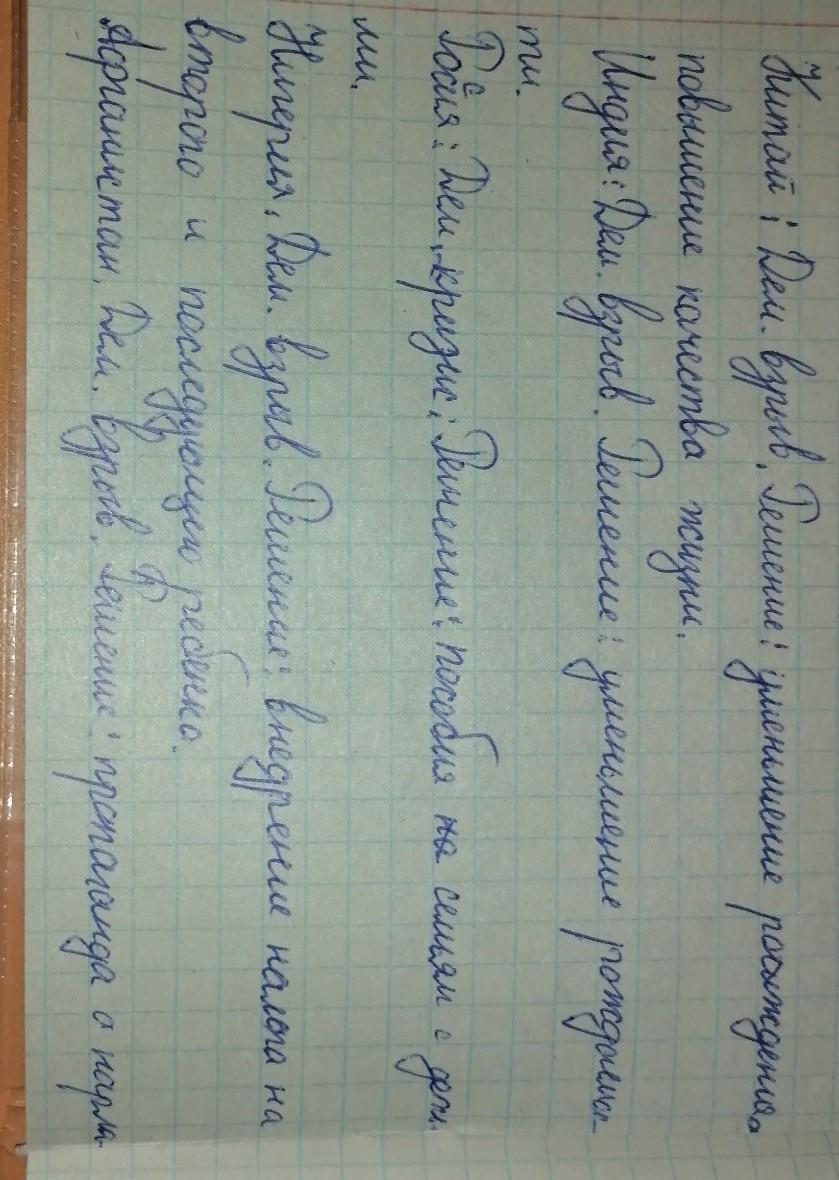 Китай: Дем. взрыв. Решение: уменьшение рождения,
повышение качества жизни.
Индия: Дем. взрыв. Решение: уменьшение рождаемос-
ти.
Россия: Дем. кризис; Решение: пособия на семьям с деть
ми.
Нигерия, Дем. взрыв. Решение: внедрение налога на
второго и последующего ребенка.
Афганистан. Дем. взрыв. Решение: пропаганда о